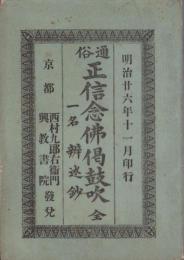 明治廿六年十一月印行
通俗
正信念佛偈鼓吹 全
一名 辨迷鈔
京都
西村九郎右衛門
興教書院
發兌